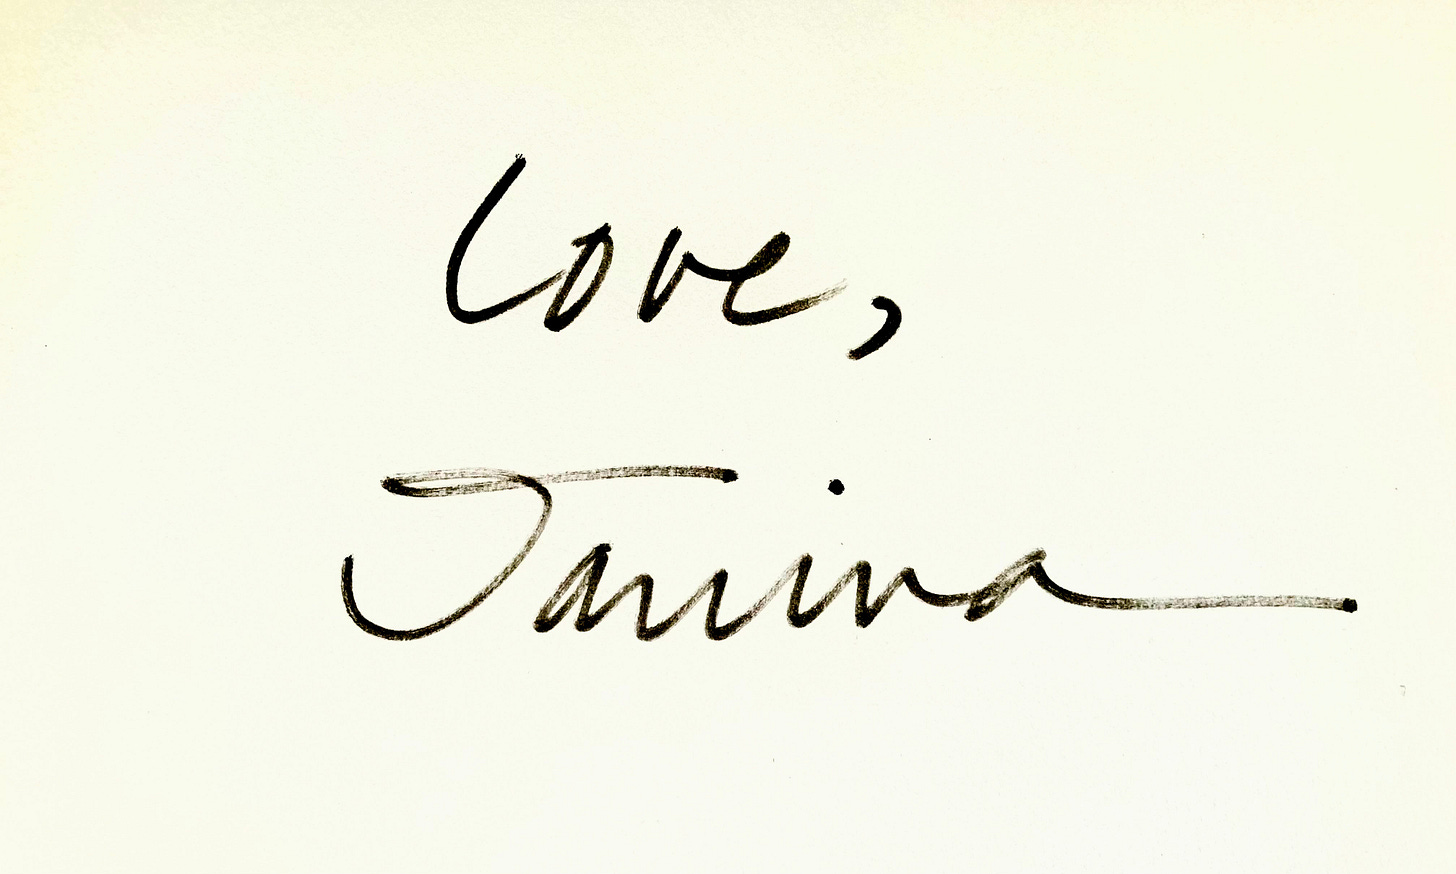 Love,
Janina